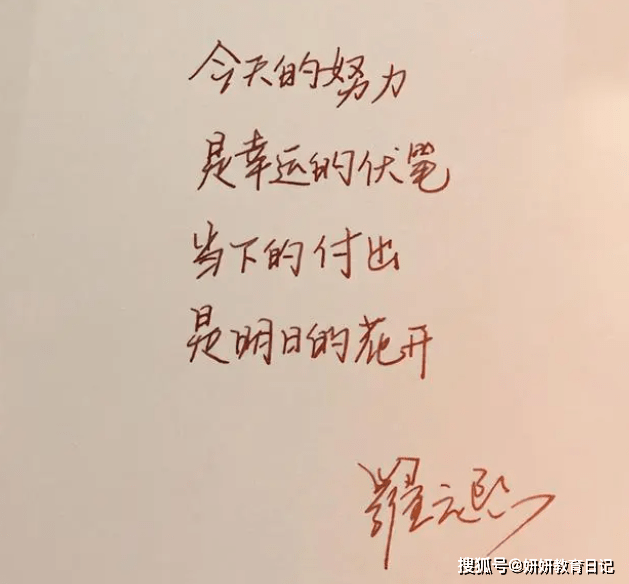 今天的努力
是幸运的伏笔
当下的付出
是明日的花开
罗云熙
搜狐号@妍妍教育日记